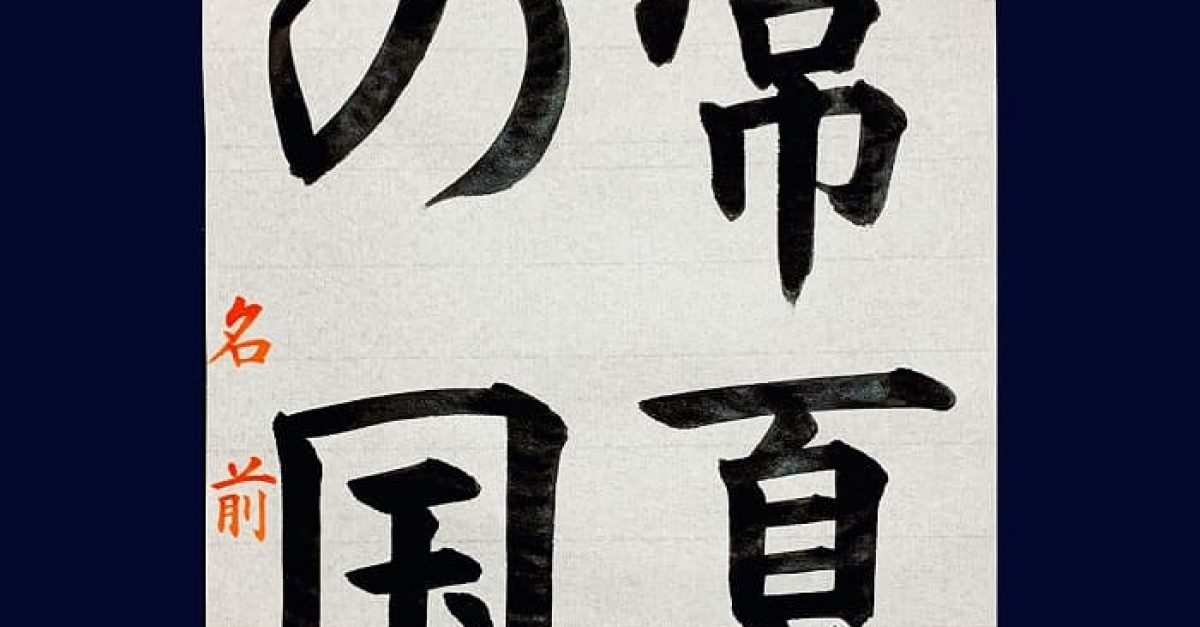 常夏
の国
名前